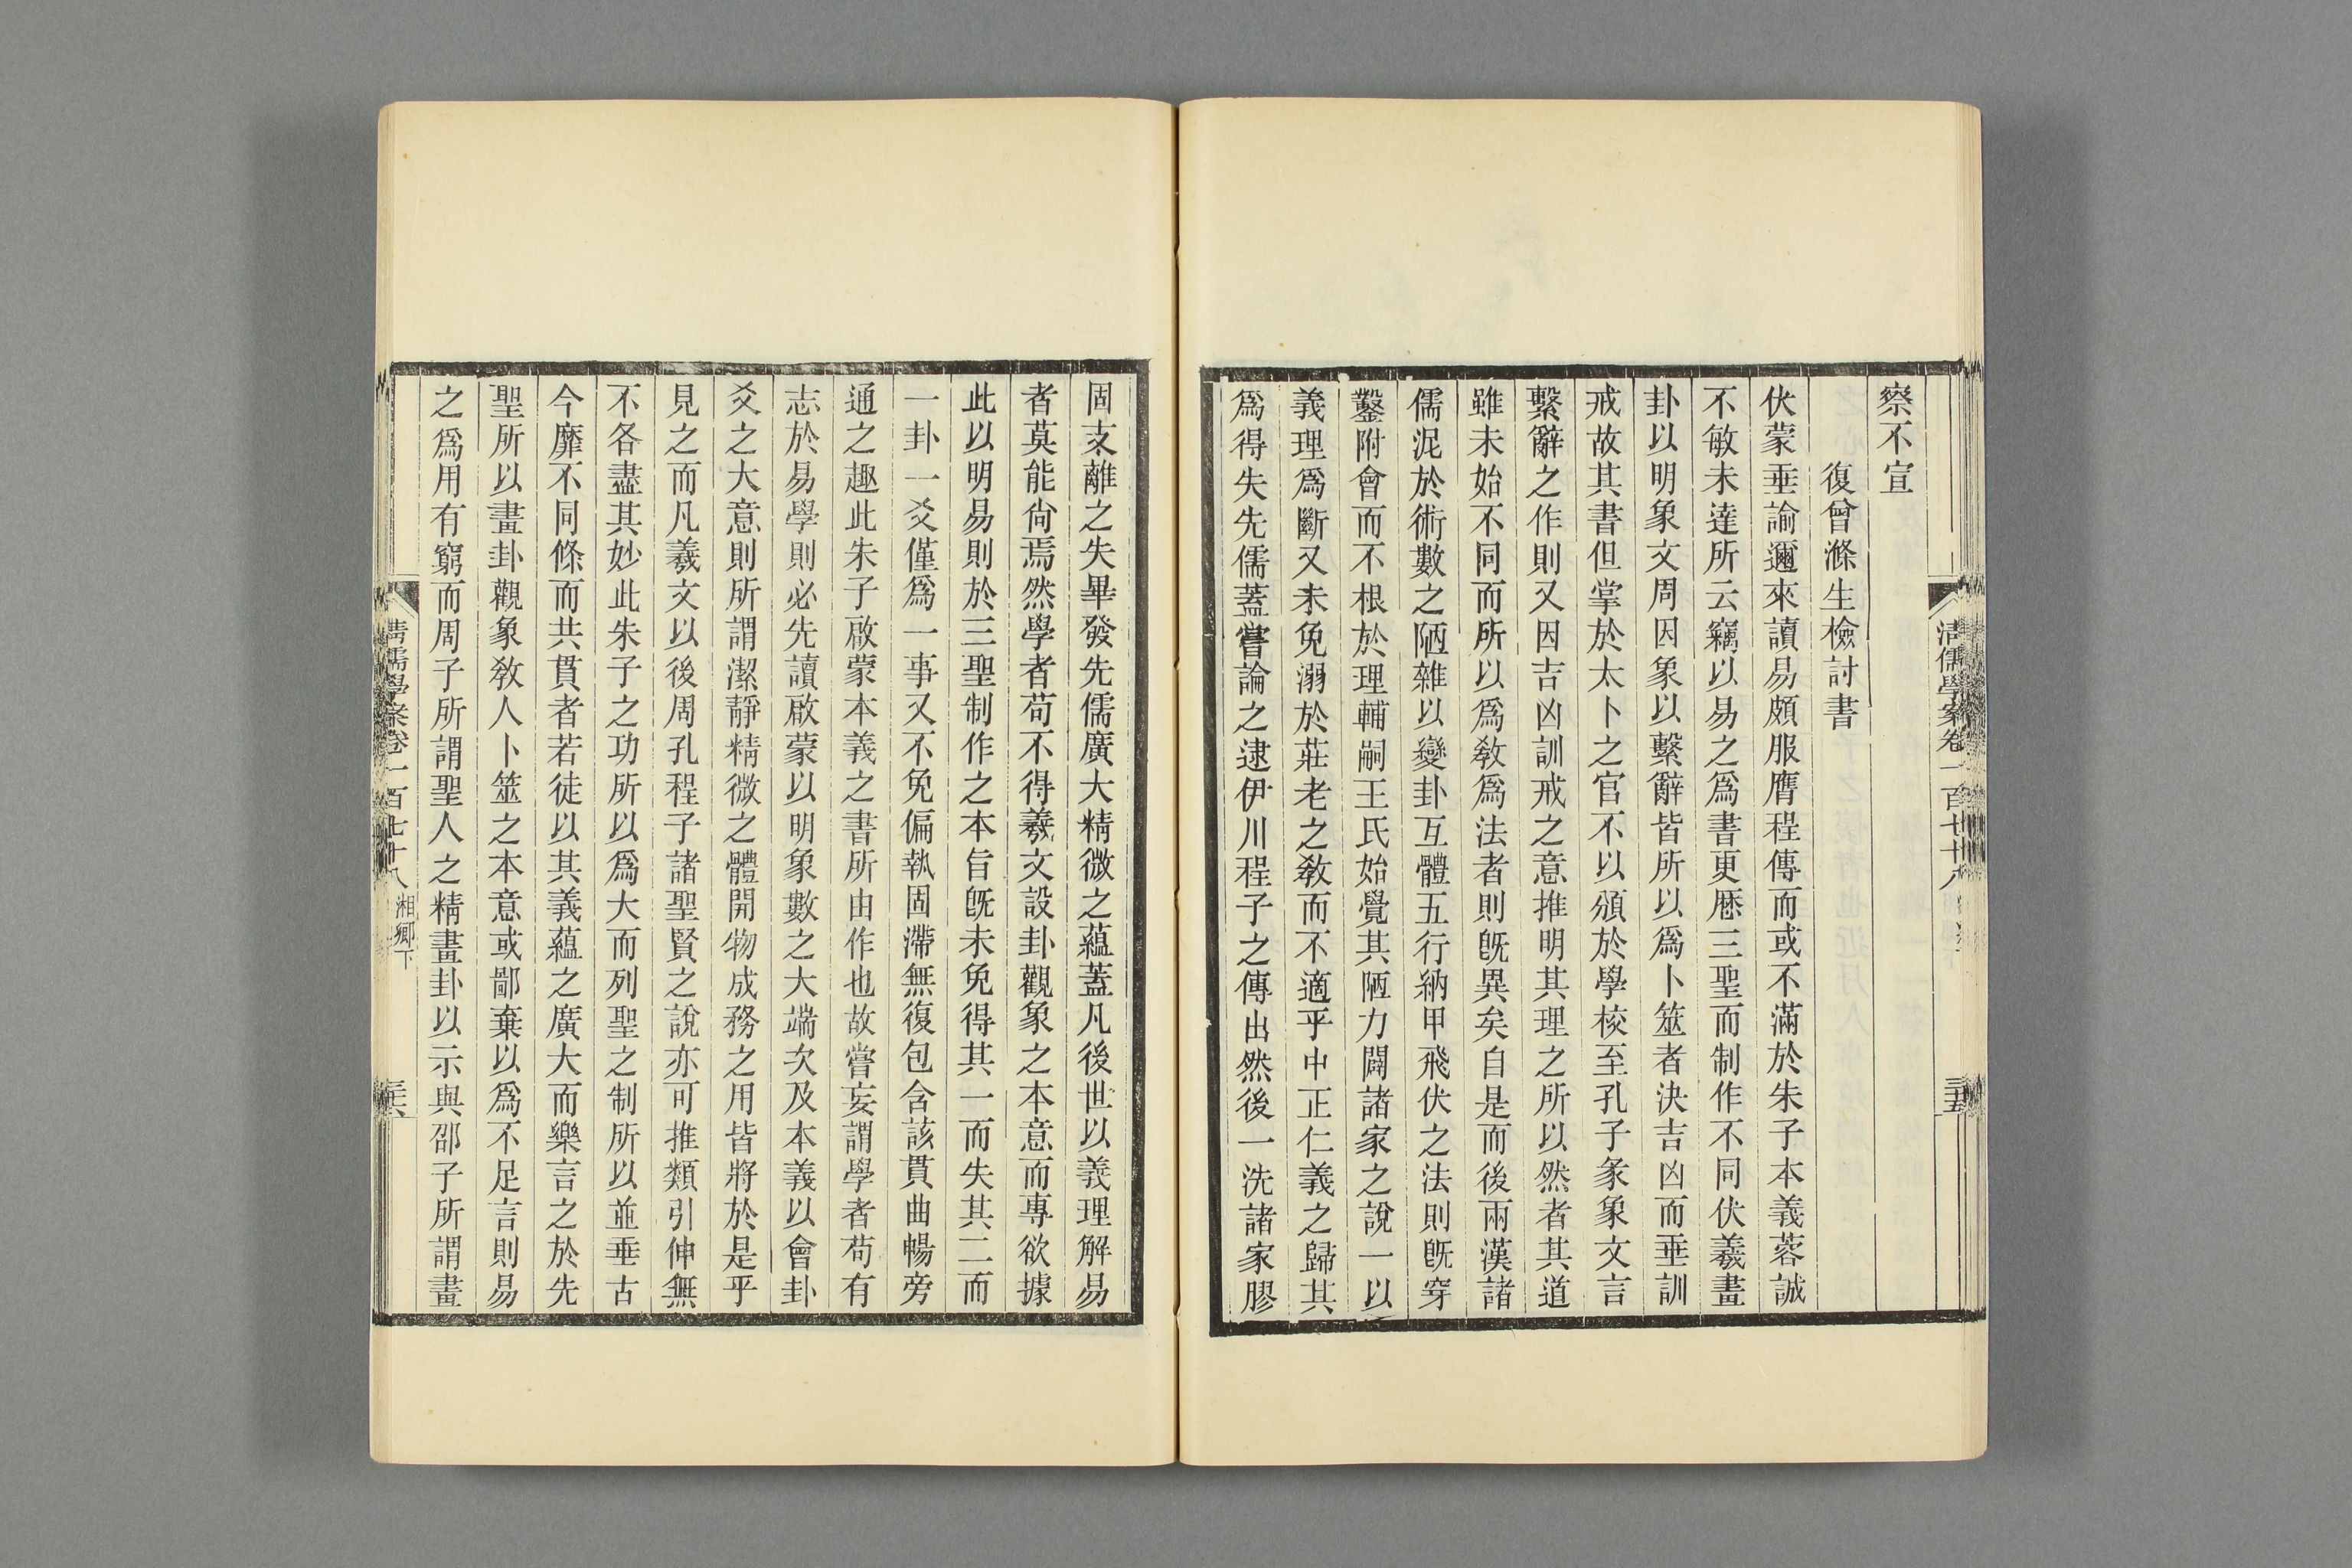 察不宣
復曾滌生檢討書
伏蒙垂諭邇來讀易頗服膺程傳而或不滿於朱子本義蓉誠
不敏未達所云竊以易之爲書更歷三聖而制作不同伏羲畫
卦以明象文周因象以繫辭皆所以爲卜筮者決吉凶而垂訓
戒故其書但掌於太卜之官不以頒於學校至孔子彖象文言
繫辭之作則又因吉凶訓戒之意推明其理之所以然者其道
雖未始不同而所以爲教爲法者則旣異矣自是而後兩漢諸
儒泥於術數之陋雜以變卦互體五行納甲飛伏之法則旣穿
鑿附會而不根於理輔嗣王氏始覺其陋力闢諸家之說一以
義理爲斷又未免溺於莊老之教而不適乎中正仁義之歸其
爲得失先儒蓋嘗論之逮伊川程子之傳出然後一洗諸家膠
固支離之失畢發先儒廣大精微之蘊蓋凡後世以義理解易
者莫能尙焉然學者苟不得羲文設卦觀象之本意而專欲據
此以明易則於三聖制作之本旨旣未免得其一而失其二而
一卦一爻僅爲一事又不免偏執固滯無復包含該貫曲暢旁
通之趣此朱子啟蒙本義之書所由作也故嘗妄謂學者苟有
志於易學則必先讀啟蒙以明象數之大端次及本義以會卦
爻之大意則所謂潔靜精微之體開物成務之用皆將於是乎
見之而凡羲文以後周孔程子諸聖賢之說亦可推類引伸無
不各盡其妙此朱子之功所以爲大而列聖之制所以並垂古
今靡不同條而共貫者若徒以其義蘊之廣大而樂言之於先
聖所以畫卦觀象教人卜筮之本意或鄙棄以爲不足言則易
之爲用有窮而周子所謂聖人之精畫卦以示與邵子所謂畫
清儒學案卷一百七十八 湘鄉下